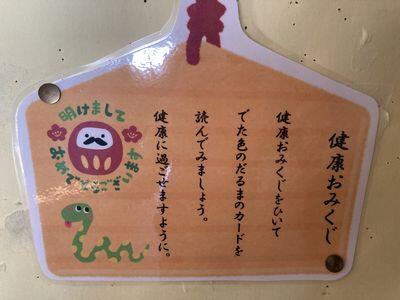 健康おみくじ
健康おみくじをひいて
でた色のだるまのカードを
読んでみましょう。
健康に過ごせますように。
明けまして
おめでとうございます